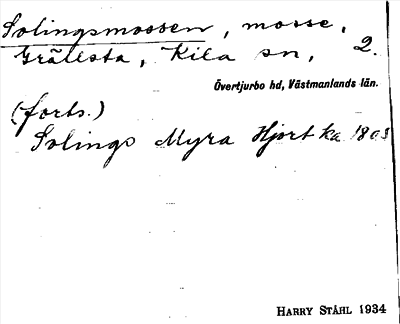 Solingsmossen, mosse,
Grällsta, Kila sn, 2.
Övertjurbo hd, Västmanlands län.
(forts.)
Solings Myra Hjort ka 1803
HARRY STÅHL 1934